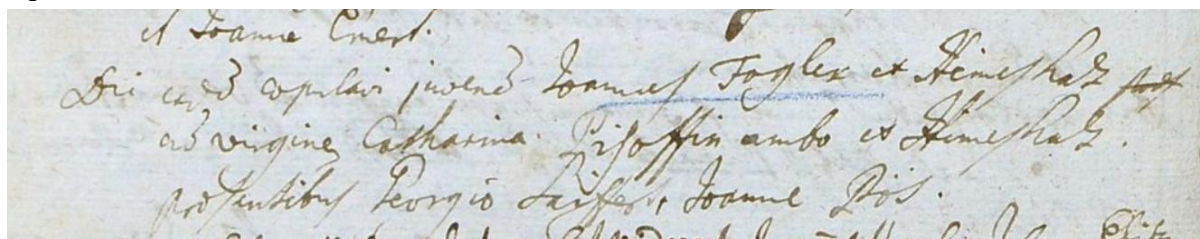 et Joanne Emert.
Die eadē copulavi juvenē Joannes Fogler ex Himeshaz
cū virgine Catharina Pishoffin ambo ex Himeshaz.
presentibus Georgio Seiffert, Joanne Rös.